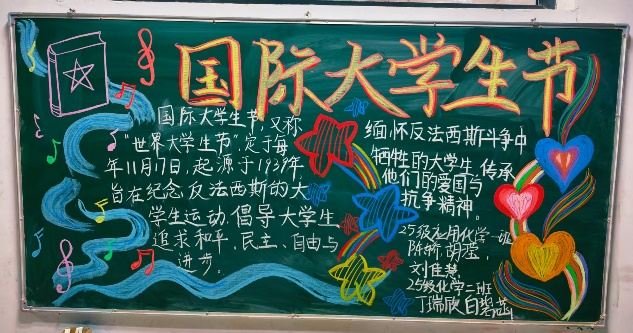 国际大学生节
国际大学生节，又称
“世界大学生节”，定于每
年11月17日，起源于1939年，
旨在纪念反法西斯的大
学生运动，倡导大学生
追求和平、民主、自由与
进步。
缅怀反法西斯斗争中
牺牲的大学生，传承
他们的爱国与
抗争精神。
25级应用化学一班
陈娇，胡莹，
刘佳慧
25级化学二班
丁瑞欣 白碧菡